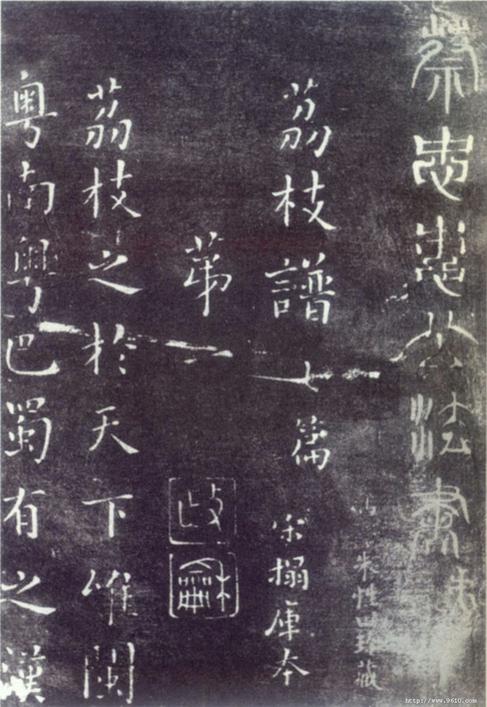 蔡忠惠公法書
朱性田珍藏
荔枝譜七篇
宋搨庫本
第一
政龢
荔枝之於天下唯閩
粤南粤巴蜀有之漢
http://www.9610.com